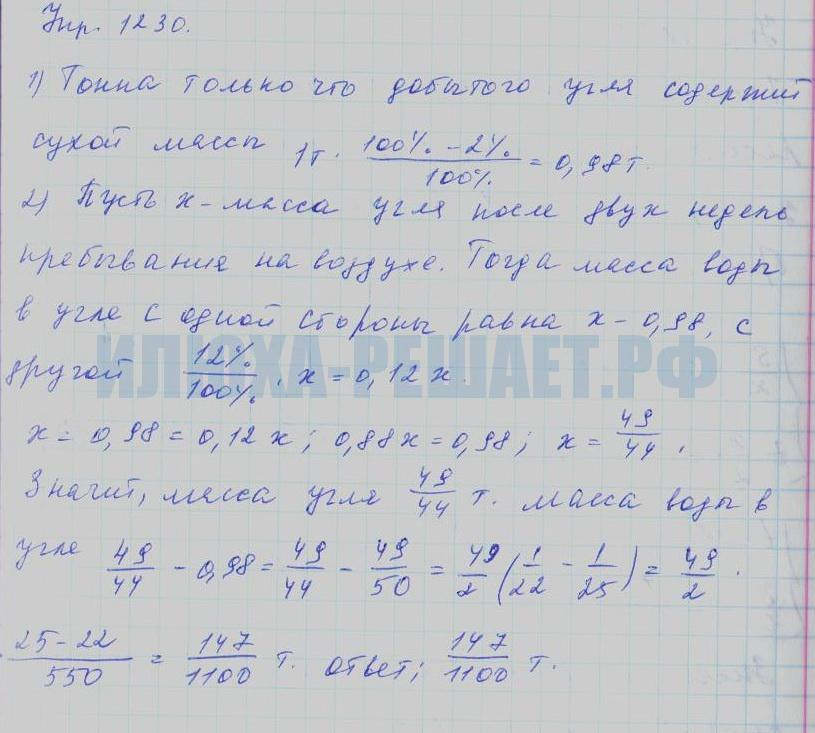 Упр. 1230.
1) Тонна только что добытого угля содержит
сухой массы 1т · (100% - 2%)/100% = 0,98т.
2) Пусть x - масса угля после двух недель
пребывания на воздухе. Тогда масса воды
в угле с одной стороны равна x - 0,98, с
другой 12%/100% · x = 0,12x.
ИЛЮХА-РЕШАЕТ.РФ
x = 0,98 = 0,12x; 0,88x = 0,98; x = 49/44.
Значит, масса угля 49/44 т. масса воды в
угле 49/44 - 0,98 = 49/44 - 49/50 = 49/2 (1/22 - 1/25) = 49/2 ·
(25-22)/550 = 147/1100 т. ответ; 147/1100 т.